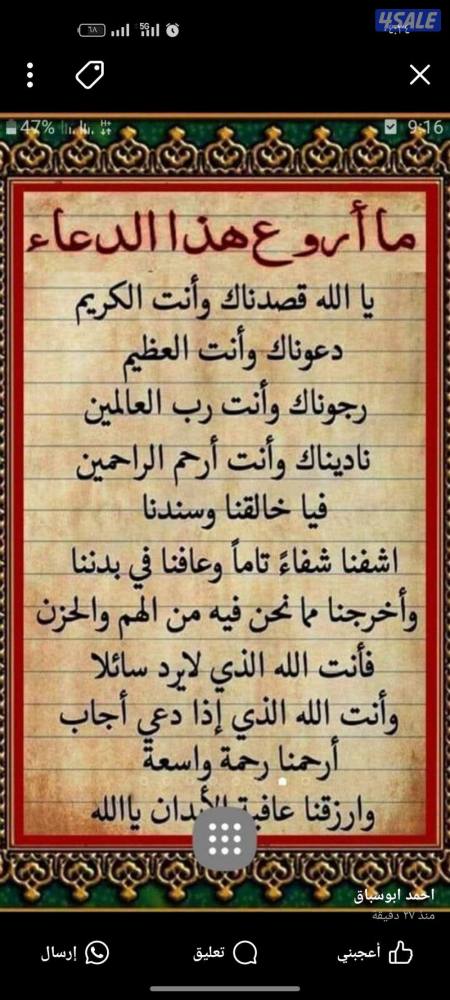 4SALE
٦٨
5G
47%
H+
9:16
ما أروع هذا الدعاء
يا الله قصدناك وأنت الكريم
دعوناك وأنت العظيم
رجوناك وأنت رب العالمين
ناديناك وأنت أرحم الراحمين
فيا خالقنا وسندنا
اشفنا شفاءً تاماً وعافنا في بدننا
وأخرجنا مما نحن فيه من الهم والحزن
فأنت الله الذي لايرد سائلا
وأنت الله الذي إذا دعي أجاب
أرحمنا رحمة واسعة
وارزقنا عافية الأبدان ياالله
احمد ابوسباق
منذ ٢٧ دقيقة
أعجبني
تعليق
إرسال